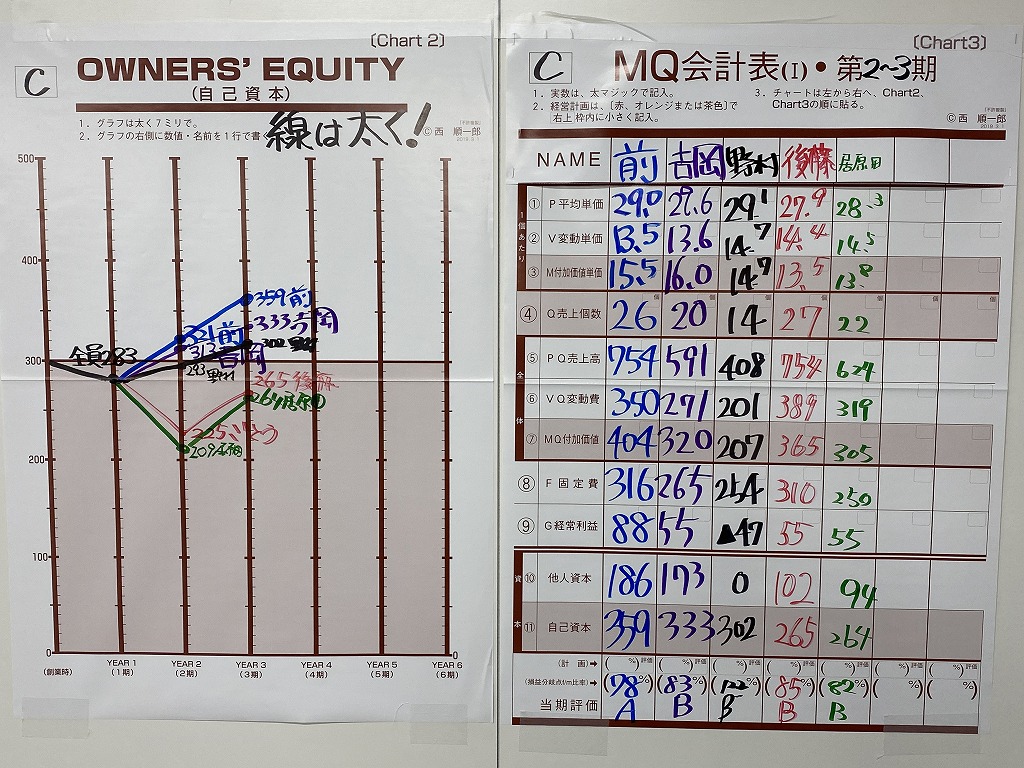 〔Chart 2〕
C
OWNERS' EQUITY
(自己資本)
1．グラフは太く7ミリで。
2．グラフの右側に数値・名前を1行で書く
線は太く!
©西 順一郎
500
400
300
200
100
0
0
359前
321前
333吉岡
313吉岡
302野村
293野村
全員283
265後藤
264居原田
225
209
(創業時)
YEAR 1 YEAR 2 YEAR 3 YEAR 4 YEAR 5 YEAR 6
(1期) (2期) (3期) (4期) (5期) (6期)
〔Chart3〕
C
MQ会計表(I)・第2〜3期
1．実数は、太マジックで記入。
2．経営計画は、〔赤、オレンジまたは茶色〕で
右上枠内に小さく記入。
3．チャートは左から右へ、Chart2、
Chart3の順に貼る。
©西 順一郎
NAME 前 吉岡 野村 後藤 居原田
1個あたり
① P平均単価 29.0 29.6 29.1 27.9 28.3
② V変動単価 13.5 13.6 14.7 14.4 14.5
③ M付加価値単価 15.5 16.0 14.7 13.5 13.8
④ Q売上個数 26 20 14 27 22
個 個 個 個 個 個 個
全体
⑤ PQ売上高 754 591 408 754 624
⑥ VQ変動費 350 271 201 389 319
⑦ MQ付加価値 404 320 207 365 305
⑧ F固定費 316 265 254 310 250
⑨ G経常利益 88 55 ▲47 55 55
資本
⑩ 他人資本 186 173 0 102 94
⑪ 自己資本 359 333 302 265 264
(計画)➡ ( %)評価 ( %)評価 ( %)評価 ( %)評価 ( %)評価 ( %)評価 ( %)評価
(損益分岐点f/m比率)➡ (78%) (83%) (122%) (85%) (82%) ( %) ( %)
当期評価 A B B B B